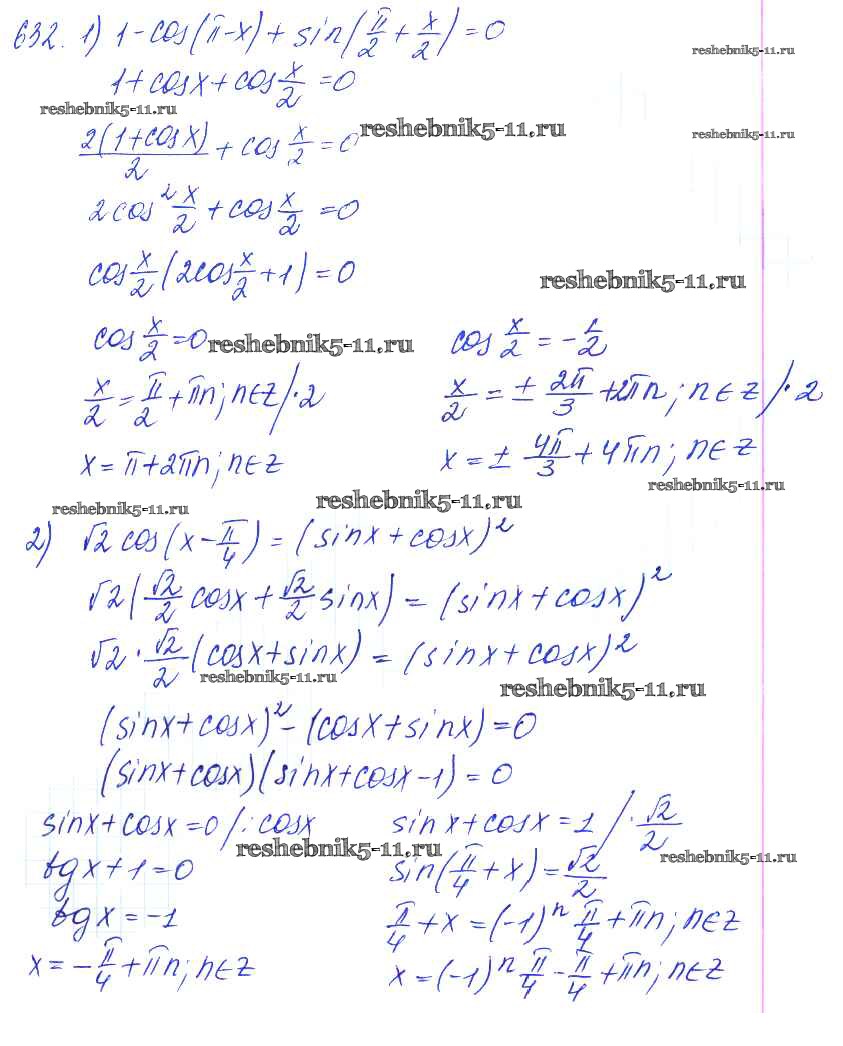 632. 1) 1-cos(π-x)+sin(π/2+x/2)=0
reshebnik5-11.ru
1+cosx+cos x/2=0
reshebnik5-11.ru
2(1+cosx)/2+cos x/2=0
reshebnik5-11.ru
reshebnik5-11.ru
2cos² x/2+cos x/2=0
cos x/2(2cos x/2+1)=0
reshebnik5-11.ru
cos x/2=0
reshebnik5-11.ru
cos x/2=-1/2
x/2=π/2+πn; n∈Z/·2
x/2=±2π/3+2πn; n∈Z/·2
x=π+2πn; n∈Z
x=±4π/3+4πn; n∈Z
reshebnik5-11.ru
reshebnik5-11.ru
reshebnik5-11.ru
2) √2cos(x-π/4)=(sinx+cosx)²
√2(√2/2 cosx+√2/2 sinx)=(sinx+cosx)²
√2·√2/2(cosx+sinx)=(sinx+cosx)²
reshebnik5-11.ru
reshebnik5-11.ru
(sinx+cosx)²-(cosx+sinx)=0
(sinx+cosx)(sinx+cosx-1)=0
sinx+cosx=0/:cosx
sinx+cosx=1/·√2/2
reshebnik5-11.ru
reshebnik5-11.ru
tgx+1=0
sin(π/4+x)=√2/2
tgx=-1
π/4+x=(-1)ⁿπ/4+πn; n∈Z
x=-π/4+πn; n∈Z
x=(-1)ⁿπ/4-π/4+πn; n∈Z